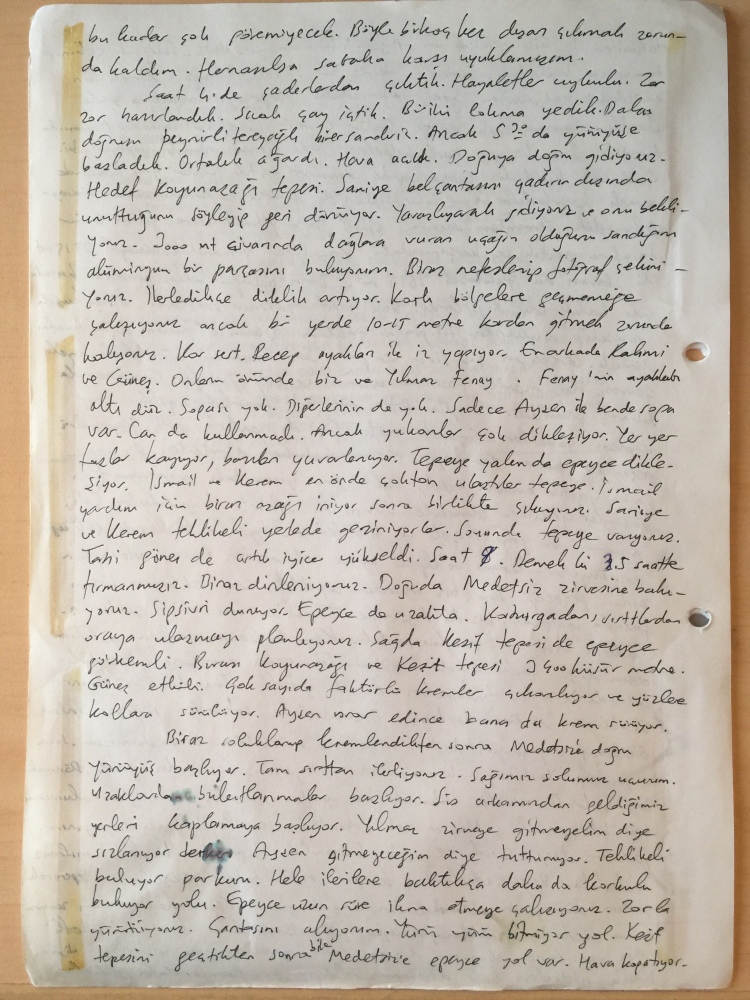 bu kadar çok göremiyecek. Böyle birkaç kez dışarı çıkmak zorun-
da kaldım. Hernasılsa sabaha karşı uyuklamışım.
Saat 4 de çadırlardan çıktık. Hayaletler uykulu. Zor
zor hazırlandık. Sıcak çay içtik. Biriki lokma yedik. Daha
doğrusu peynirli tereyağlı birer sandviç. Ancak 5 30 da yürüyüşe
başladık. Ortalık ağardı. Hava açık. Doğuya doğru gidiyoruz.
Hedef Koyunaşağı tepesi. Saniye belçantasını çadırın dışında
unuttuğunu söyleyip geri dönüyor. Yavaşlıyarak gidiyoruz ve onu bekli-
yoruz. 3000 mt civarında dağlara vuran uçağın olduğunu sandığım
alüminyum bir parçasını buluyorum. Biraz nefeslenip fotoğraf çekini-
yoruz. İlerledikçe diklik artıyor. Karlı bölgelere geçmemeğe
çalışıyoruz ancak bir yerde 10-15 metre kardan gitmek zorunda
kalıyoruz. Kar sert. Recep ayakları ile iz yapıyor. En arkada Rahmi
ve Güneş. Onların önünde biz ve Yılmaz Fenay. Fenay'ının ayakkabı
altı düz. Sopası yok. Diğerlerinin de yok. Sadece Ayşen ile bende sopa
var. Can da kullanmadı. Ancak yukarılar çok dikleşiyor. Yer yer
taşlar kayıyor, bazıları yuvarlanıyor. Tepeye yakında epeyce dikle-
şiyor. İsmail ve Kerem en önde çoktan ulaştılar tepeye. İsmail
yardım için biraz aşağı iniyor sonra birlikte çıkıyoruz. Saniye
ve Kerem tehlikeli yerlede geziniyorlar. Sonunda tepeye varıyoruz.
Tabi güneş de artık iyice yükseldi. Saat 8. Demek ki 2.5 saatte
tırmanmışız. Biraz dinleniyoruz. Doğuda Medetsiz zirvesine bakı-
yoruz. Sipsivri duruyor. Epeyce de uzakta. Kaburgadan, sırtlardan
oraya ulaşmayı planlıyoruz. Sağda Keşif tepesi de epeyce
görkemli. Burası Koyunaşağı ve Keşif tepesi 3400 küsür metre.
Güneş etkili. Çok sayıda faktörlü kremler çıkarılıyor ve yüzlere
kollara sürülüyor. Ayşen ısrar edince bana da krem sürüyor.
Biraz soluklanıp kremlendikten sonra Medetsiz'e doğru
yürüyüş başlıyor. Tam sırttan ilerliyoruz. Sağımız solumuz uçurum.
Uzaklardan bulutlanmalar başlıyor. Sis arkamızdan geldiğimiz
yerleri kaplamaya başlıyor. Yılmaz zirveye gitmeyelim diye
sızlanıyor derken Ayşen gitmeyeceğim diye tutturuyor. Tehlikeli
buluyor parkuru. Hele ilerilere baktıkça daha da korkulu
buluyor yolu. Epeyce uzun süre ikna etmeye çalışıyoruz. Zorla
yürütüyoruz. Çantasını alıyorum. Yürü yürü bitmiyor yol. Keşif
tepesini geçtikten sonra bile Medetsiz'e epeyce yol var. Hava kapatıyor.